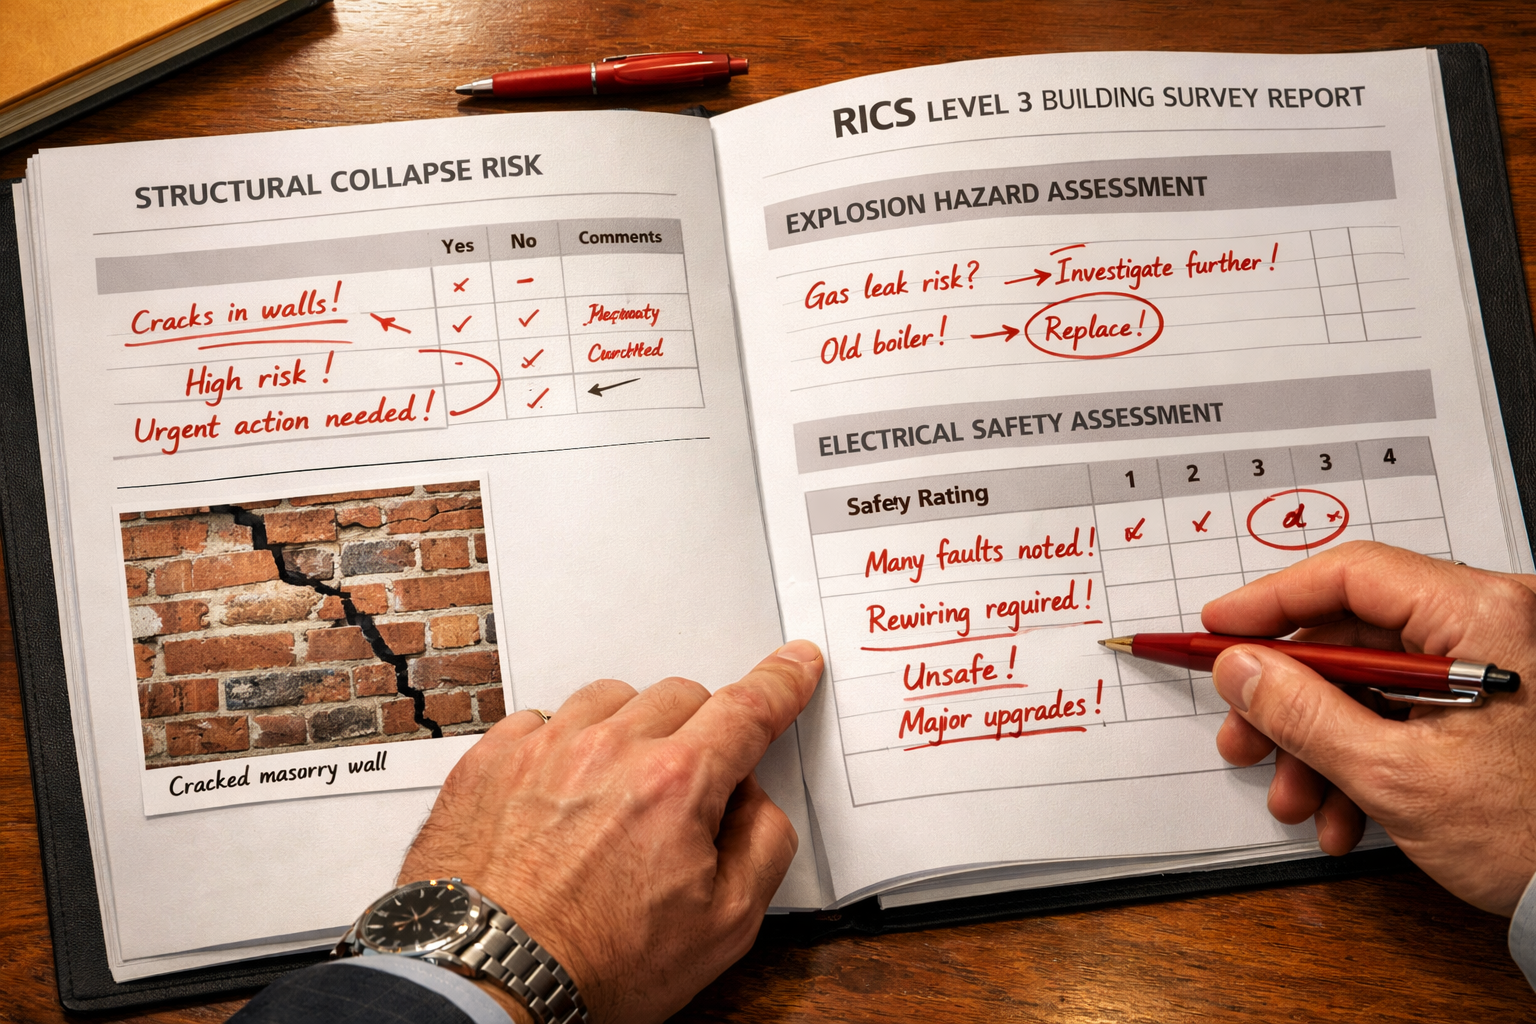 STRUCTURAL COLLAPSE RISK
Yes No Comments
Cracks in walls!
High risk!
Urgent action needed!
Cracked masorry wall
RICS LEVEL 3 BUILDING SURVEY REPORT
EXPLOSION HAZARD ASSESSMENT
Gas leak risk? → Investigate further!
Old boiler! → Replace!
ELECTRICAL SAFETY ASSESSMENT
Safety Rating 1 2 3 3 4
Many faults noted!
Rewiring reguired!
Unsafe!
Major upgrades!